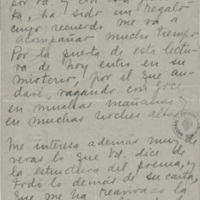 por va. y con su
ta, ha sido un regalo
cuyo recuerdo me va a
acompañar mucho tiempo.
Por la puerta de esta lectu-
ra de hoy entro en su
misterio, por el que an-
daré, vagando con goce
en muchas mañanas y
en muchas noches
Me interesa además muy de
veras lo que Vd. dice de
la estructura del poema, y
todo lo demás de su carta,
que me ha reavivado la